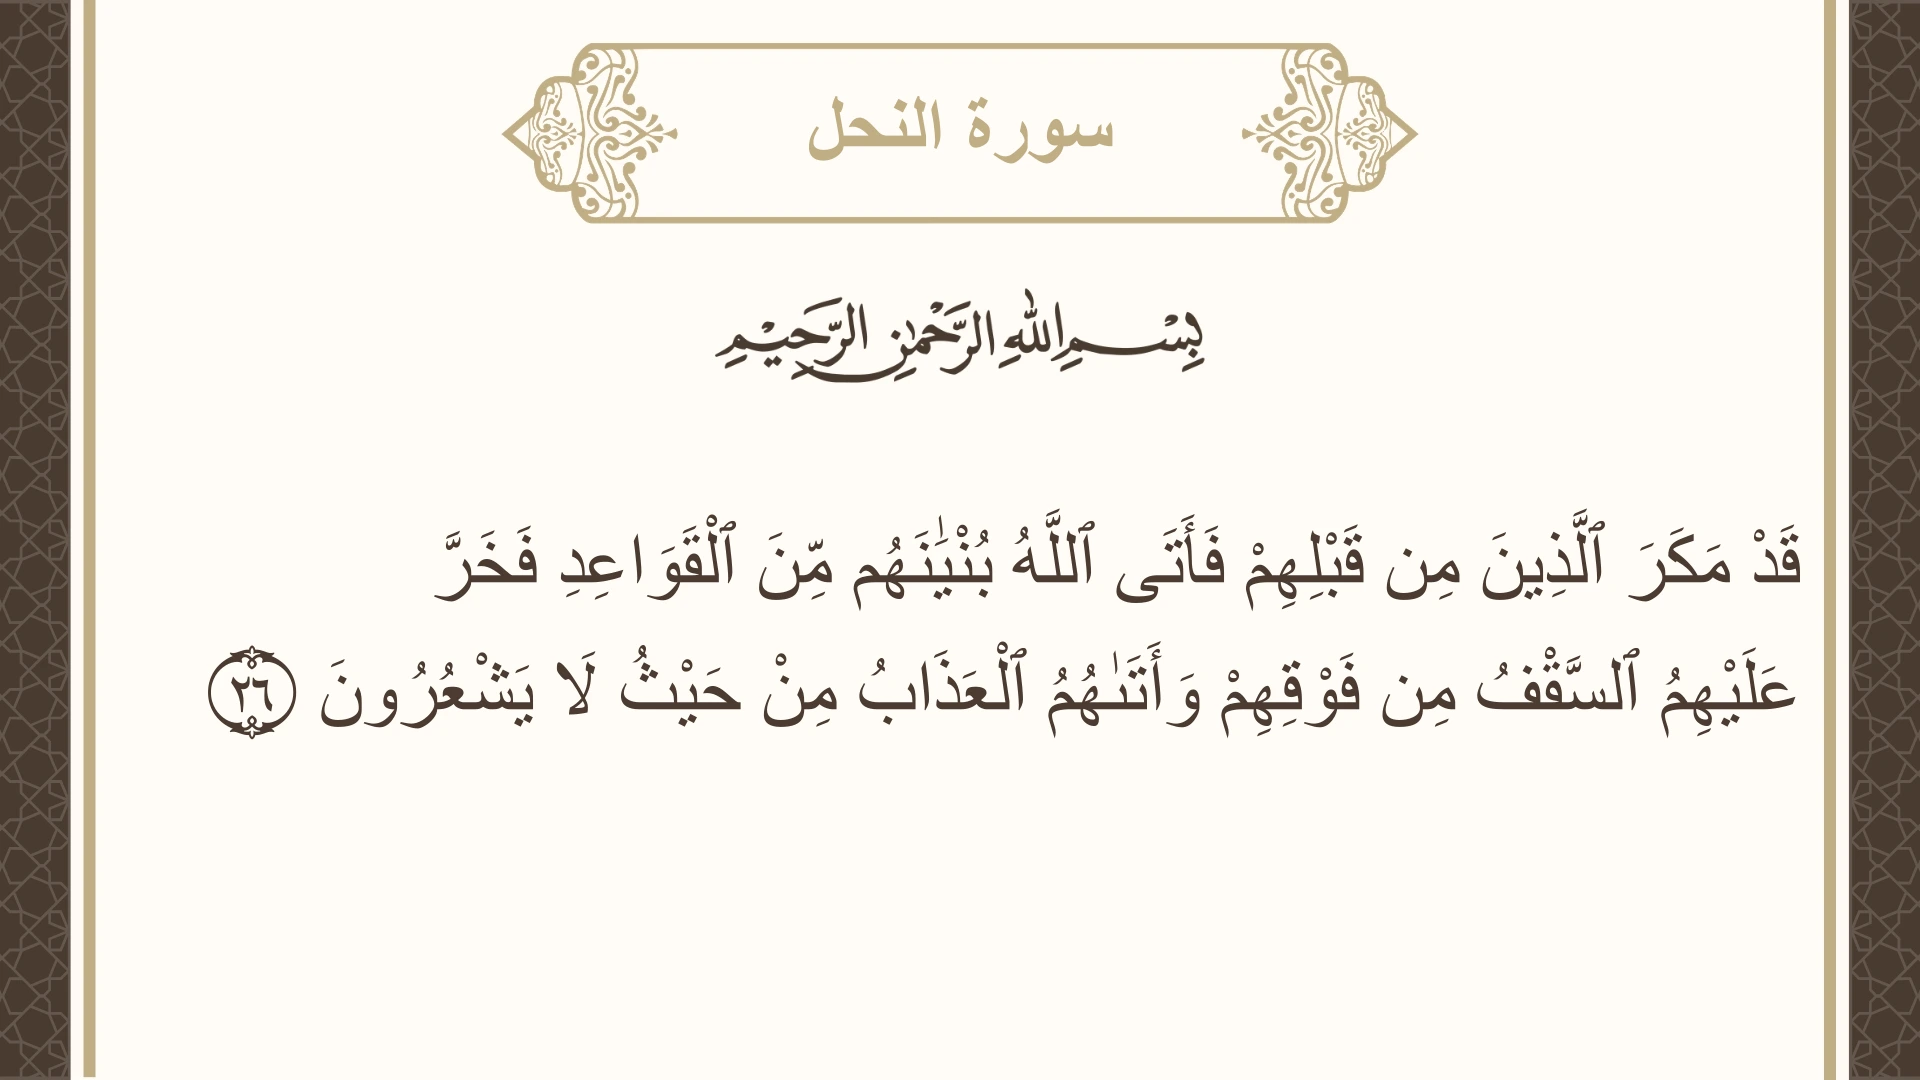 سورة النحل
بِسْمِ اللهِ الرَّحْمٰنِ الرَّحِيْمِ
قَدْ مَكَرَ ٱلَّذِينَ مِن قَبْلِهِمْ فَأَتَى ٱللَّهُ بُنْيَٰنَهُم مِّنَ ٱلْقَوَاعِدِ فَخَرَّ
عَلَيْهِمُ ٱلسَّقْفُ مِن فَوْقِهِمْ وَأَتَىٰهُمُ ٱلْعَذَابُ مِنْ حَيْثُ لَا يَشْعُرُونَ ٢٦